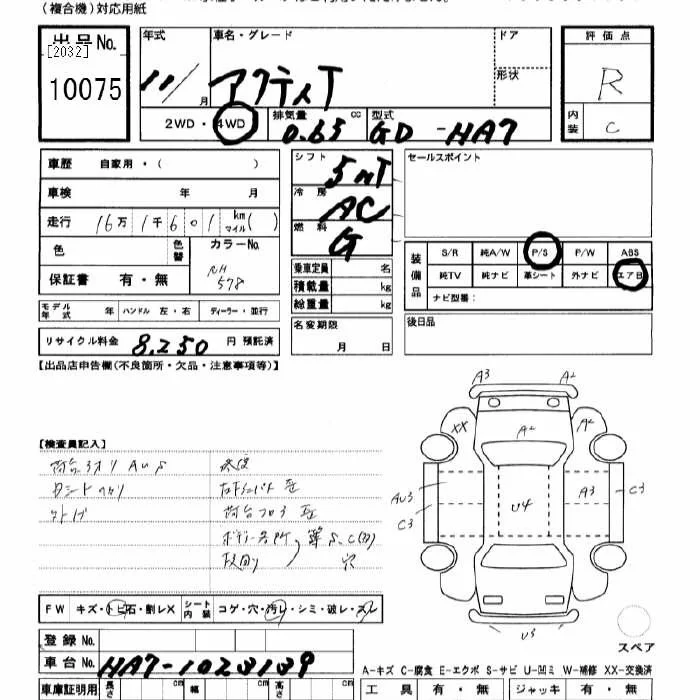 (複合機)対応用紙
出品No.
[2032]
10075
年式
11/
月
車名・グレード
アクティT
ドア
形状
評価点
R
内装
C
2WD・4WD
排気量
0.65
cc
型式
GD-HA7
車歴 自家用・( )
車検 年 月
走行 16万1千601 km マイル( )
色
色替
カラーNo.
NH
578
保証書 有・無
モデル年式 年 ハンドル 左・右 ディーラー・並行
リサイクル料金 8,250 円 預託済
シフト
5MT
冷房
AC
燃料
G
乗車定員 名
積載量 kg
総重量 kg
名変期限
月 日
セールスポイント
装備品
S/R 純A/W P/S P/W ABS
純TV 純ナビ 革シート 外ナビ エアB
ナビ型番:
後日品
【出品店申告欄(不良箇所・欠品・注意事項等)】
【検査員記入】
A3
A2
XX
A2
A2
AU3
C3
U4
A3
C3
U3
スペア
FW キズ・トビ石・割レX シート内装 コゲ・穴・汚レ・シミ・破レ・スレ
登録No.
車台No. HA7-1023139
車庫証明用 長さ cm 幅 cm 高さ cm
A-キズ C-腐食 E-エクボ S-サビ U-凹ミ W-補修 XX-交換済
工具 有・無 ジャッキ 有・無